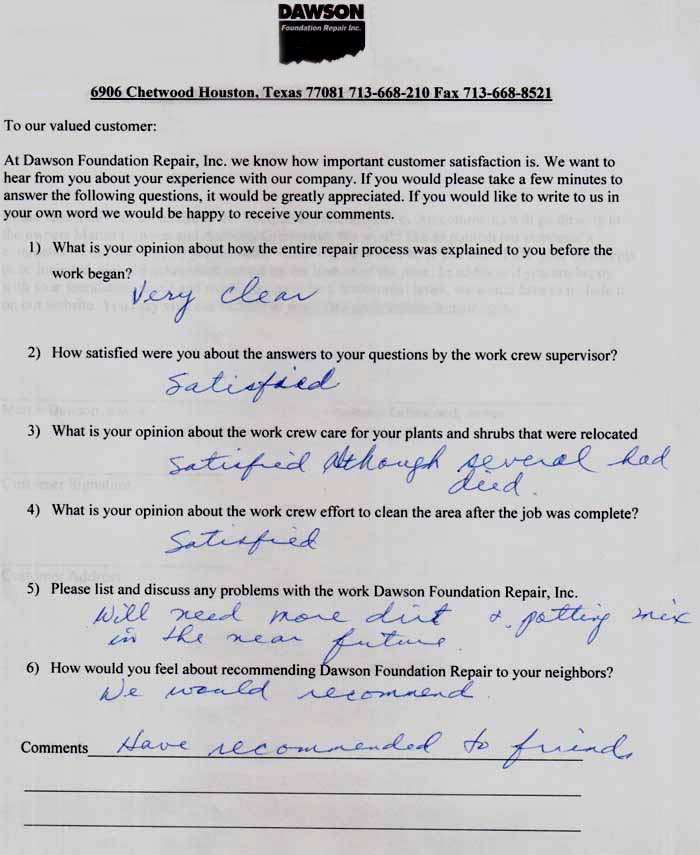 DAWSON
Foundation Repair Inc.
6906 Chetwood Houston, Texas 77081 713-668-210 Fax 713-668-8521
To our valued customer:
At Dawson Foundation Repair, Inc. we know how important customer satisfaction is. We want to
hear from you about your experience with our company. If you would please take a few minutes to
answer the following questions, it would be greatly appreciated. If you would like to write to us in
your own word we would be happy to receive your comments.
1) What is your opinion about how the entire repair process was explained to you before the
work began?
Very clear
2) How satisfied were you about the answers to your questions by the work crew supervisor?
Satisfied
3) What is your opinion about the work crew care for your plants and shrubs that were relocated
Satisfied Although several had
died.
4) What is your opinion about the work crew effort to clean the area after the job was complete?
Satisfied
5) Please list and discuss any problems with the work Dawson Foundation Repair, Inc.
Will need more dirt & potting mix
in the near future.
6) How would you feel about recommending Dawson Foundation Repair to your neighbors?
We would recommend.
Comments Have recommended to friends
Customer Signature
Customer Address